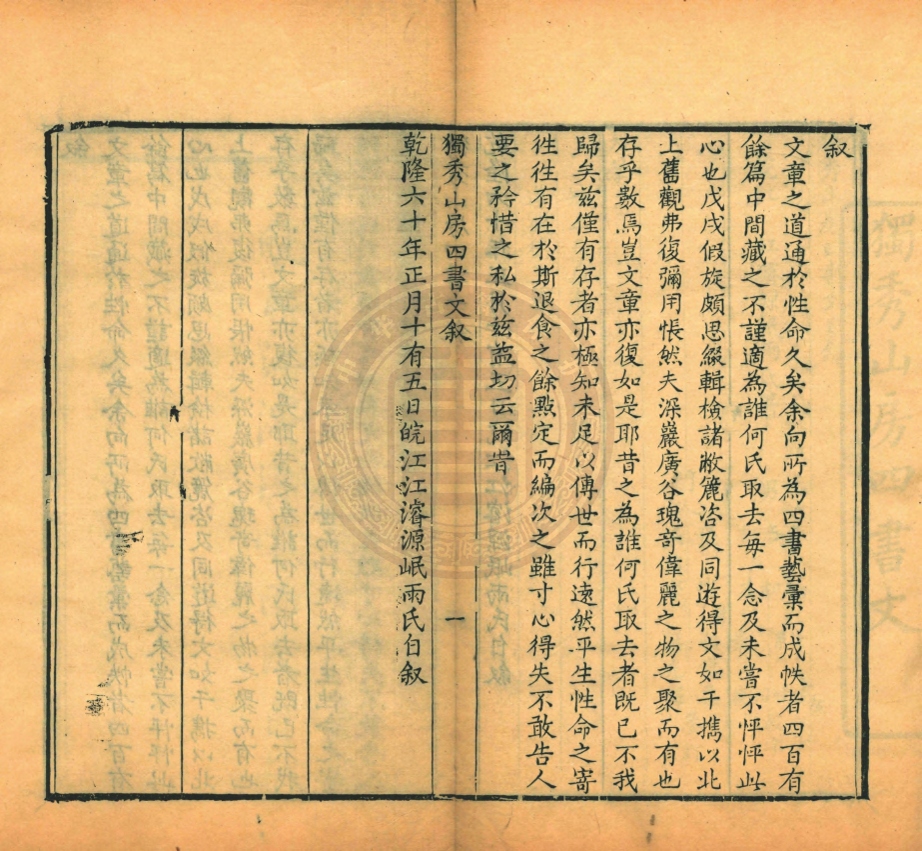 叙
文章之道通於性命久矣余向所為四書藝彙而成帙者四百有
餘篇中間藏之不謹適為誰何氏取去每一念及未嘗不怦怦此
心也戊戌假旋頗思綴輯檢諸敝簏咨及同遊得文如干攜以北
上舊觀弗復彌用悵然夫深巖廣谷瑰奇偉麗之物之聚而有也
存乎數焉豈文章亦復如是耶昔之為誰何氏取去者既已不我
歸矣兹僅有存者亦極知未足以傳世而行遠然平生性命之寄
徃徃有在於斯退食之餘㸃定而編次之雖寸心得失不敢告人
要之矜惜之私於兹益切云爾旹
獨秀山房四書文叙 一
乾隆六十年正月十有五日皖江江濬源岷雨氏自叙